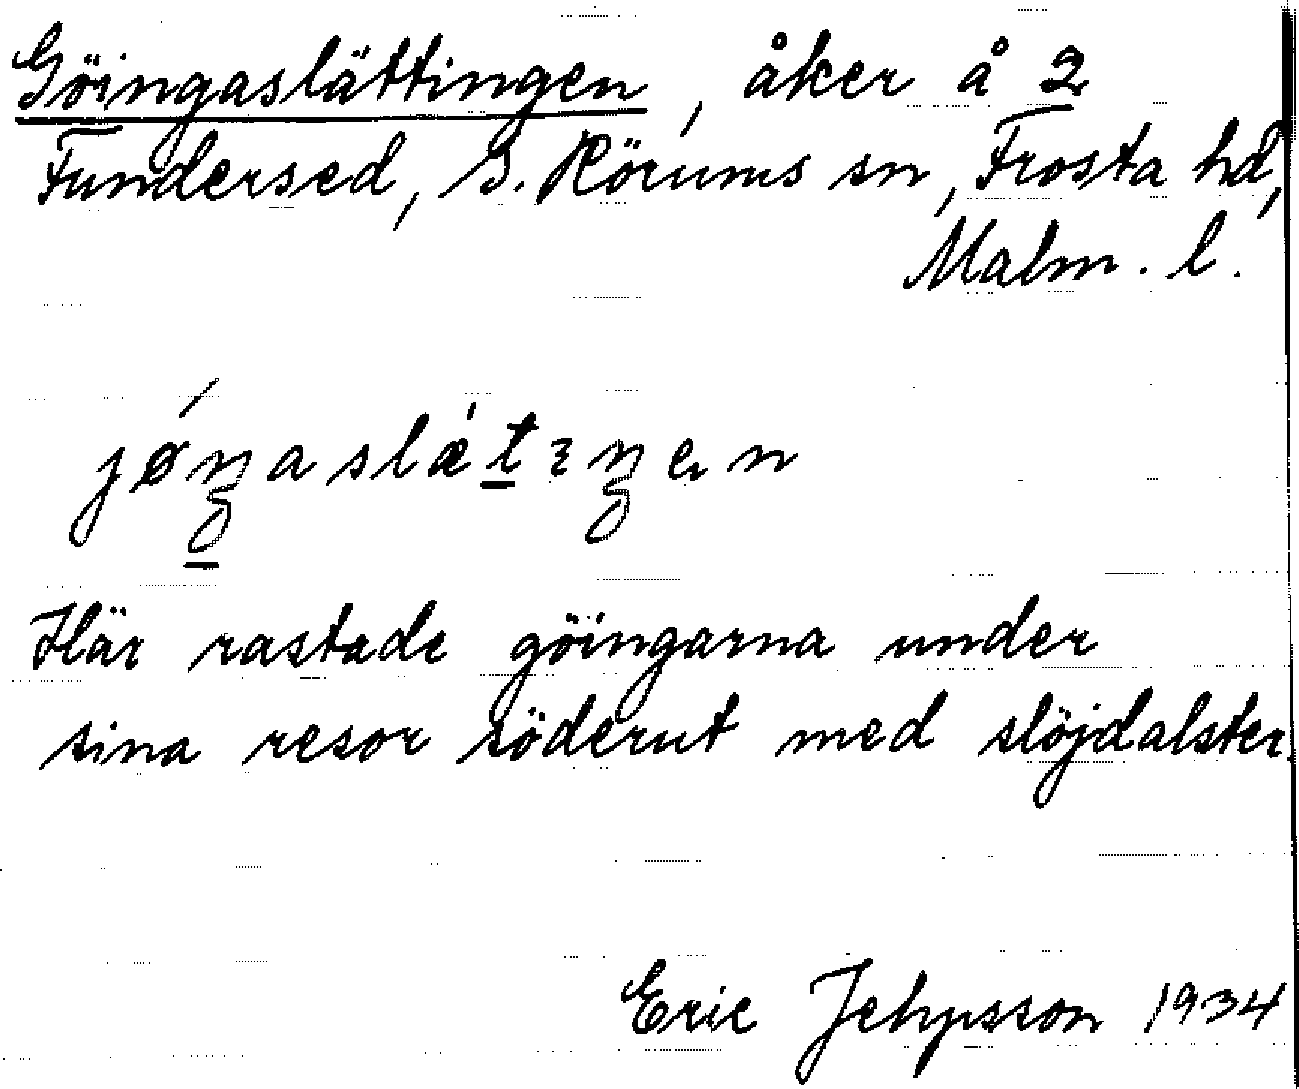 Göingaslättingen, åker å 2
Fundersed, S. Rörums sn, Frosta hd,
Malm. l.
jøŋaslætıŋen
Här rastade göingarna under
sina resor söderut med slöjdalster.
Eric Jehpsson 1934